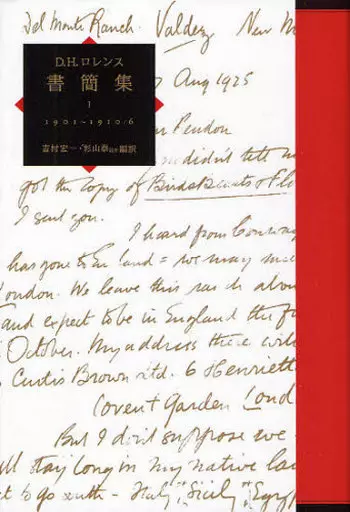 Del Monte Ranch. Valdez New M
Aug 1925
D.H.ロレンス
書簡集
I
1901〜1910/6
吉村宏一・杉山泰ほか編訳
didn't tell me
got the copy of Birds Beasts & Flo
I sent you.
I heard from Conway
has gone to England = we may
London. We leave this ranch abou
and expect to be in England the f
October. My address there will
Curtis Brown Ltd. 6 Henriett
Covent Garden Lond
But I don't suppose we
ll stay long in my native la
t to go south - Italy, Sicily, Egyp